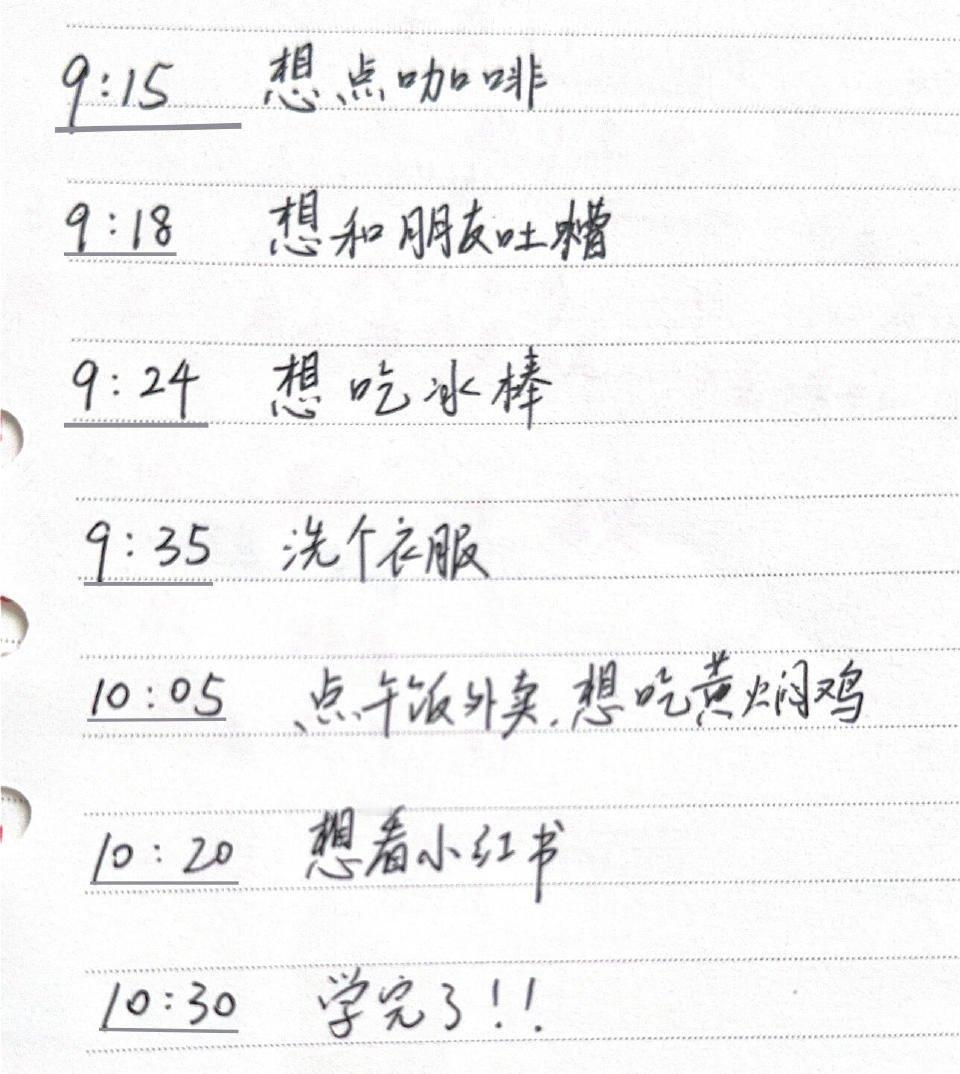 9:15 想点咖啡
9:18 想和朋友吐槽
9:24 想吃冰棒
9:35 洗个衣服
10:05 点午饭外卖，想吃黄焖鸡
10:20 想看小红书
10:30 学完了！！